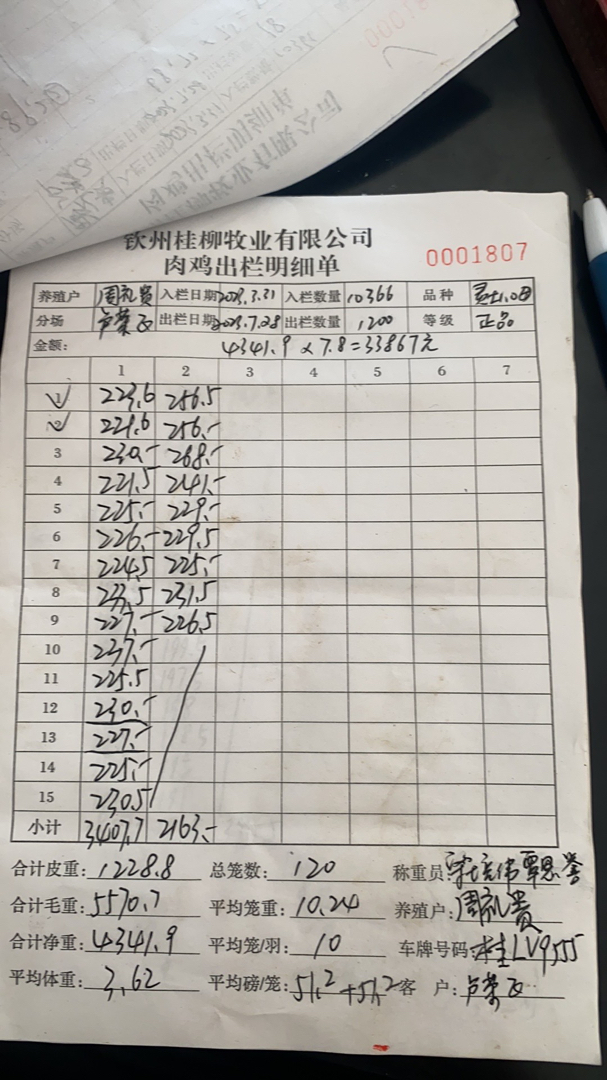 钦州桂柳牧业有限公司
肉鸡出栏明细单
0001807
养殖户 周礼贵 入栏日期 2023.3.31 入栏数量 10366 品种
分场 卢荣 出栏日期 2023.7.28 出栏数量 1200 等级 正品
金额: 4341.9×7.8=33867元
1 2 3 4 5 6 7
1 223.6 256.5
2 221.6 256.-
3 230.- 268.-
4 221.5 241.-
5 225.- 229.-
6 226.- 229.5
7 224.5 225.-
8 233.5 231.5
9 227.- 226.5
10 237.-
11 225.5
12 230.-
13 227.-
14 225.-
15 230.5
小计 3407.7 2163.-
合计皮重: 1228.8 总笼数: 120 称重员
合计毛重: 5570.7 平均笼重: 10.24 养殖户: 周礼贵
合计净重: 4341.9 平均笼/羽: 10 车牌号码: 桂LV9555
平均体重: 3.62 平均磅/笼: 51.2+51.2 客户: 卢荣